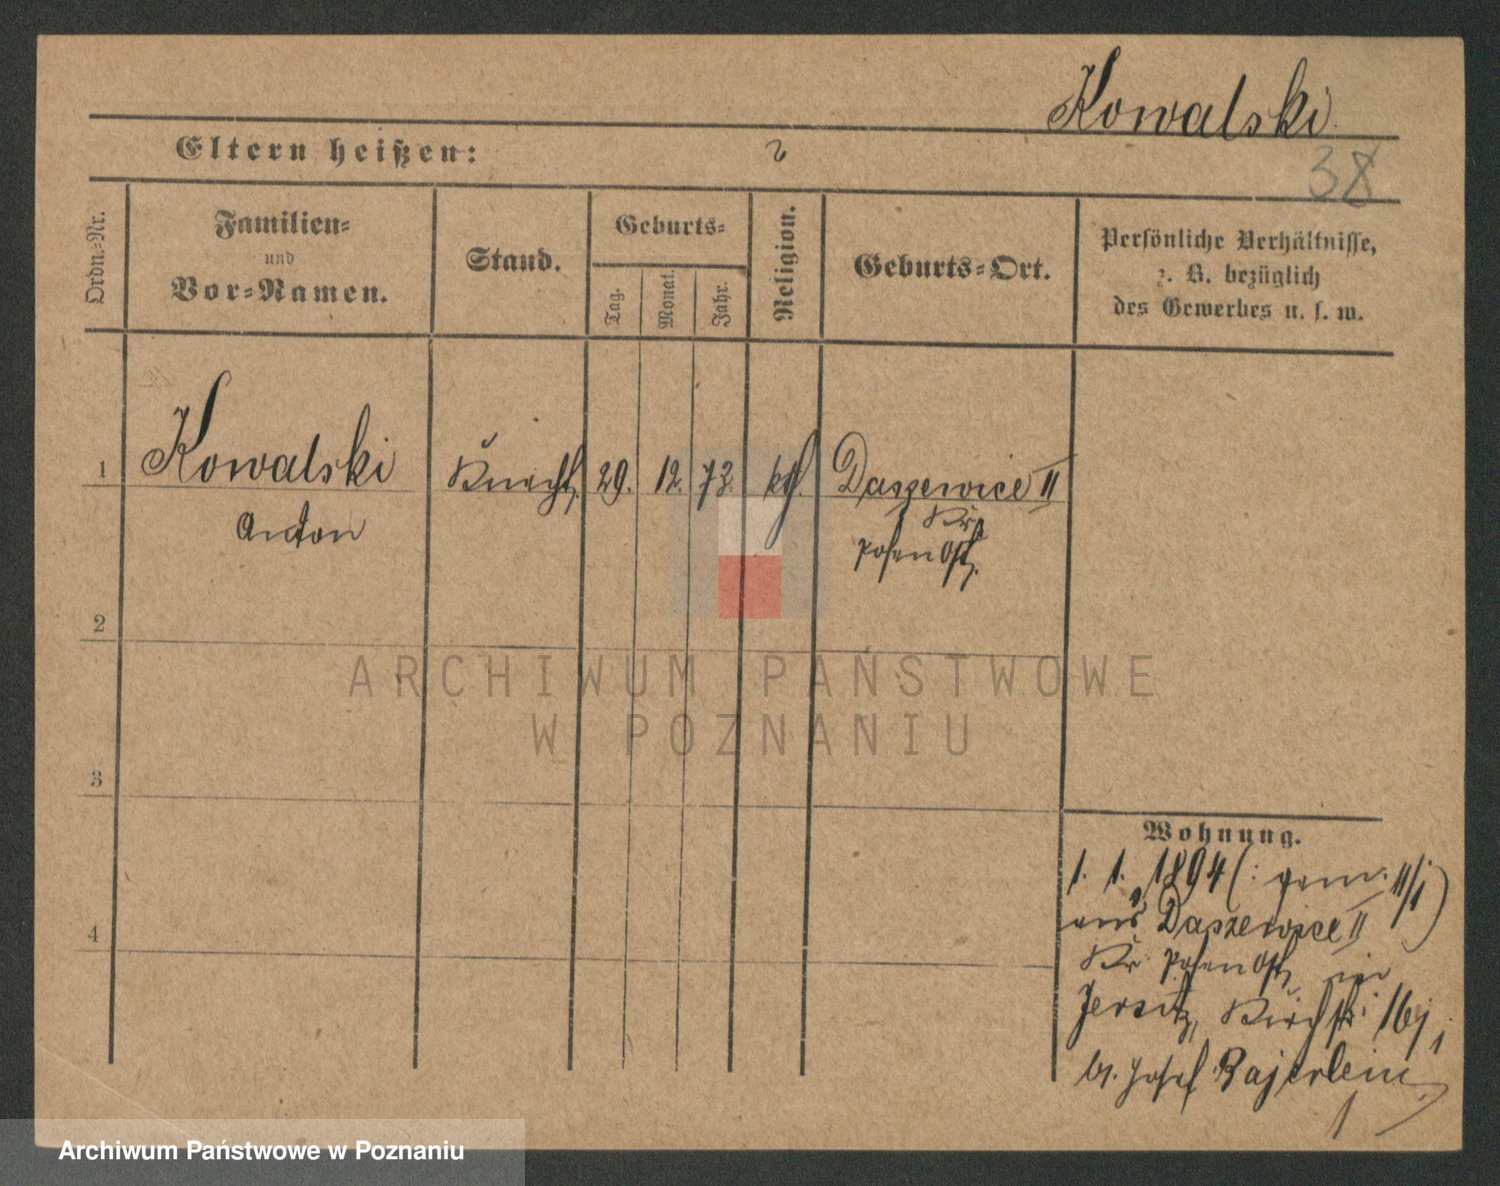 Kowalski
38
Eltern heißen:
Ordn.-Nr.
Familien-
und
Vor-Namen.
Stand.
Geburts-
Tag.
Monat.
Jahr.
Religion.
Geburts-Ort.
Persönliche Verhältnisse,
z. B. bezüglich
des Gewerbes u. s. w.
1 Kowalski Knecht 29. 12. 73 kth. Daszewice II
Anton Kr.
Posen Ost.
2
3
4
Wohnung.
1. 1. 1894 (: gem. 11/1)
aus Daszewice II
Kr. Posen Ost, in
Jersitz, Kirchstr.
b. Josef Bajerlein
ARCHIWUM PAŃSTWOWE
W POZNANIU
Archiwum Państwowe w Poznaniu